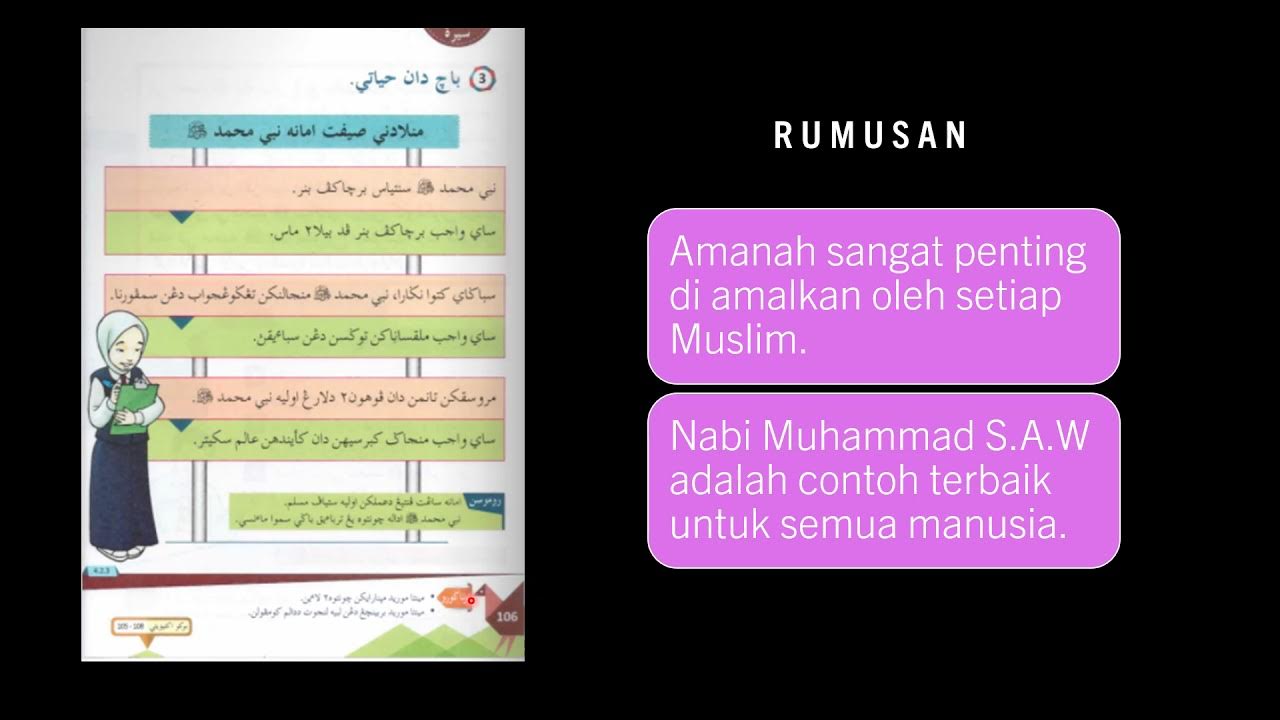 سيرة
3 باچ دان حياتي.
منلادني صيفت امانه نبي محمد ﷺ
نبي محمد ﷺ سنتياس برچاكڤ بنر.
ساي واجب برچاكڤ بنر ڤد بيلا٢ ماس.
سباݢاي كتوا نݢارا، نبي محمد ﷺ منجالنكن تڠݢوڠجواب دڠن سمڤورنا.
ساي واجب ملقساناكن توݢسن دڠن سباءيقڽ.
مروسقكن تانمن دان ڤوهون٢ دلارڠ اوليه نبي محمد ﷺ.
ساي واجب منجاݢ كبرسيهن دان كأيندهن عالم سكيتر.
روموسن
امانه ساڠت ڤنتيڠ دعملكن اوليه ستياڤ مسلم.
نبي محمد ﷺ اداله چونتوه يڠ ترباءيق باݢي سموا مأنسي.
4.2.3
• مينتا موريد مڽنارايكن چونتوه٢ لاءين.
• مينتا موريد بربينچڠ دڠن لبيه لنجوت ددالم كومڤولن.
106
بوكو اكتيۏيتي 105 - 108
RUMUSAN
Amanah sangat penting
di amalkan oleh setiap
Muslim.
Nabi Muhammad S.A.W
adalah contoh terbaik
untuk semua manusia.